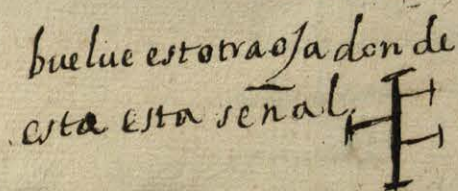 buelue estotra oja don de
esta esta señal